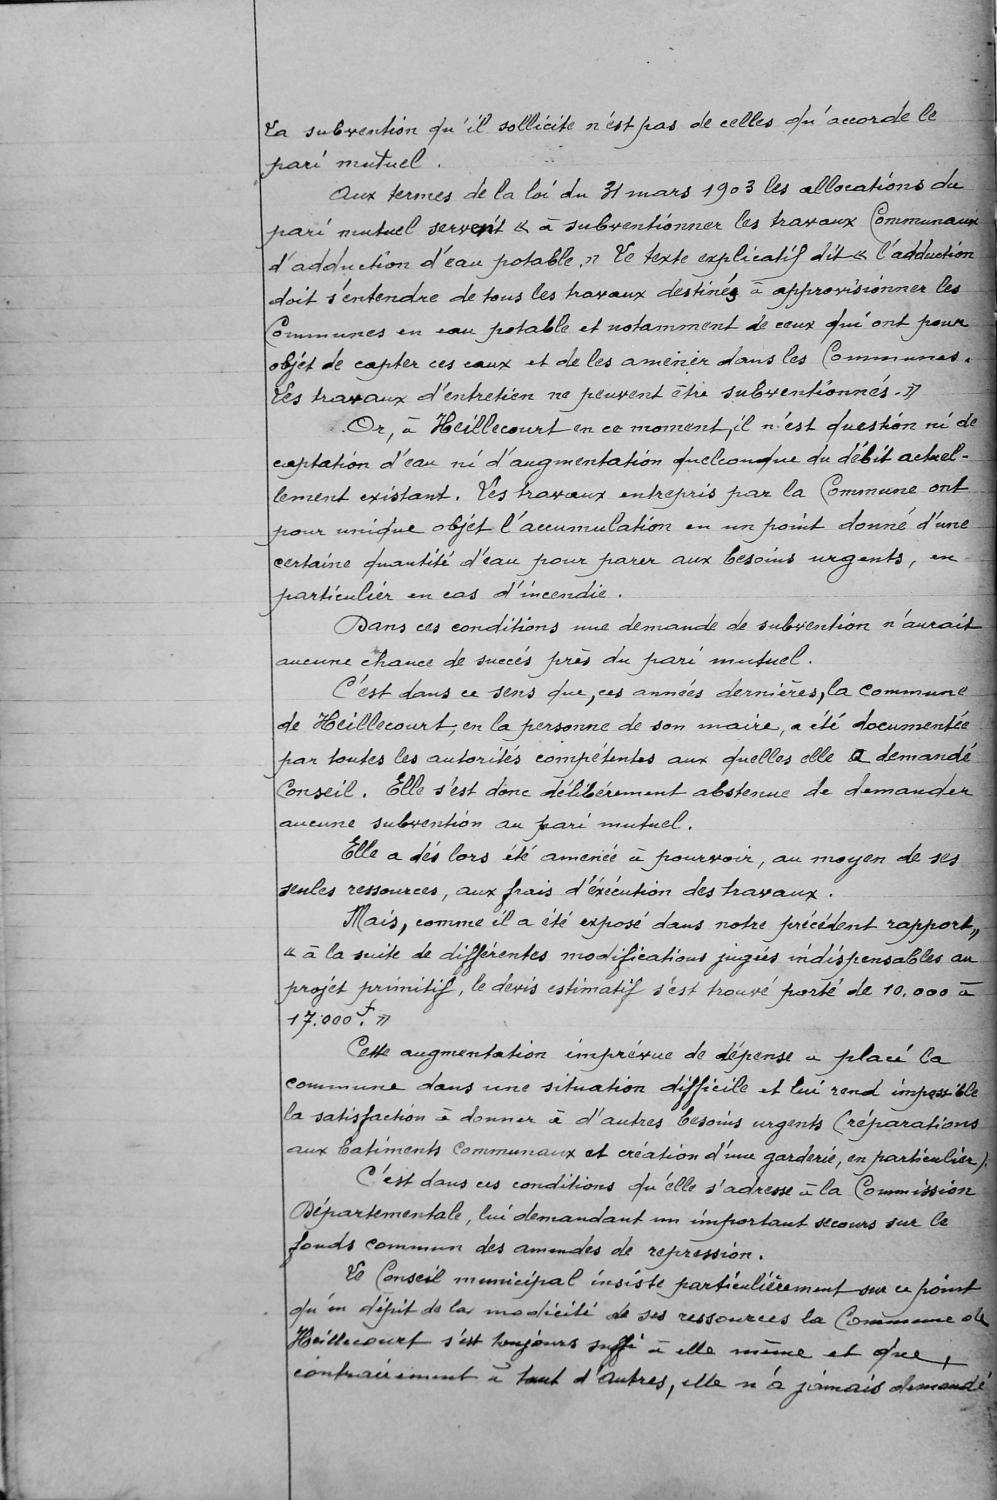 La subvention qu'il sollicite n'est pas de celles qu'accorde le
pari mutuel.
Aux termes de la loi du 31 mars 1903 les allocations du
pari mutuel servent « à subventionner les travaux Communaux
d'adduction d'eau potable. » Le texte explicatif dit « l'adduction
doit s'entendre de tous les travaux destinés à approvisionner les
Communes en eau potable et notamment de ceux qui ont pour
objet de capter ces eaux et de les amener dans les Communes.
Les travaux d'entretien ne peuvent être subventionnés. »
Or, à Heillecourt en ce moment, il n'est question ni de
captation d'eau ni d'augmentation quelconque du débit actuel-
lement existant. Les travaux entrepris par la Commune ont
pour unique objet l'accumulation en un point donné d'une
certaine quantité d'eau pour parer aux besoins urgents, en
particulier en cas d'incendie.
Dans ces conditions une demande de subvention n'aurait
aucune chance de succés près du pari mutuel.
C'est dans ce sens que, ces années dernières, la commune
de Heillecourt, en la personne de son maire, a été documentée
par toutes les autorités compétentes aux quelles elle a demandé
Conseil. Elle s'est donc délibérement abstenue de demander
aucune subvention au pari mutuel.
Elle a dés lors été amenée à pourvoir, au moyen de ses
seules ressources, aux frais d'éxécution des travaux.
Mais, comme il a été exposé dans notre précédent rapport,,
« à la suite de différentes modifications jugées indispensables au
projet primitif, le devis estimatif s'est trouvé porté de 10.000 à
17.000f. »
Cette augmentation imprévue de dépense a placé la
commune dans une situation difficile et lui rend impossible
la satisfaction à donner à d'autres besoins urgents (réparations
aux batiments Communaux et création d'une garderie, en particulier).
C'est dans ces conditions qu'elle s'adresse à la Commission
Départementale, lui demandant un important secours sur le
fonds commun des amendes de repression.
Le Conseil municipal insiste particulièrement sur ce point
qu'en dépit de la modicité de ses ressources la Commune de
Heillecourt s'est toujours suffi à elle même et que,
contrairement à tant d'autres, elle n'a jamais demandé